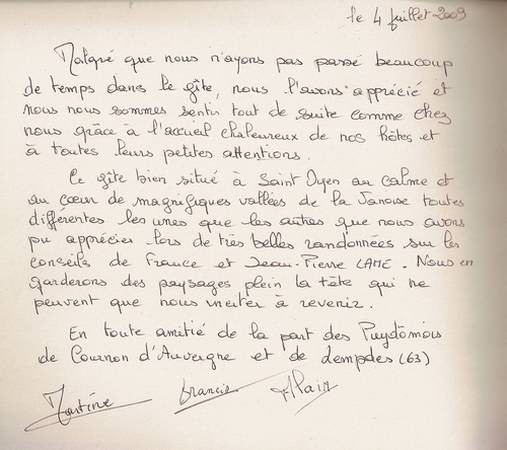 le 4 juillet 2009
Malgré que nous n'ayons pas passé beaucoup
de temps dans le gîte, nous l'avons apprécié et
nous nous sommes sentis tout de suite comme chez
nous grâce à l'accueil chaleureux de nos hôtes et
à toutes leurs petites attentions.
Ce gîte bien situé à Saint Oyen au calme et
au cœur de magnifiques vallées de la Vanoise toutes
différentes les unes que les autres que nous avons
pu apprécier lors de très belles randonnées sur les
conseils de France et Jean-Pierre LAME. Nous en
garderons des paysages plein la tête qui ne
peuvent que nous inciter à revenir.
En toute amitié de la part des Puydômois
de Cournon d'Auvergne et de Lempdes (63)
Martine Francis Alain